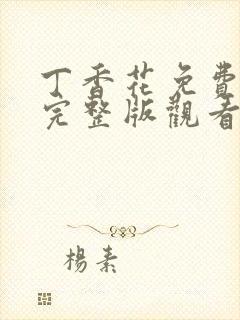 丁香花免費
完整版觀看
楊素